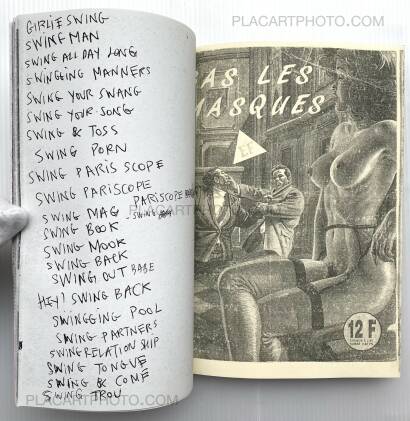 PLACARTPHOTO.COM
GIRLIE SWING
SWING MAN
SWING ALL DAY LONG
SWINGGING MANNERS
SWING YOUR SWANG
SWING YOUR SONG
SWING & TOSS
SWING PORN
SWING PARIS SCOPE
SWING PARISCOPE
PARISCOPE
SWING MAG
SWING
SWING BOOK
SWING MOOK
SWING BACK
SWING OUT BABE
HEY! SWING BACK
SWINGGING POOL
SWING PARTNERS
SWING RELATION SHIP
SWING TONGUE
SWING & COME
SWING TROU
PLACARTPHOTO.COM
BAS LES
MASQUES
EF
12 F
PLACARTPHOTO.COM